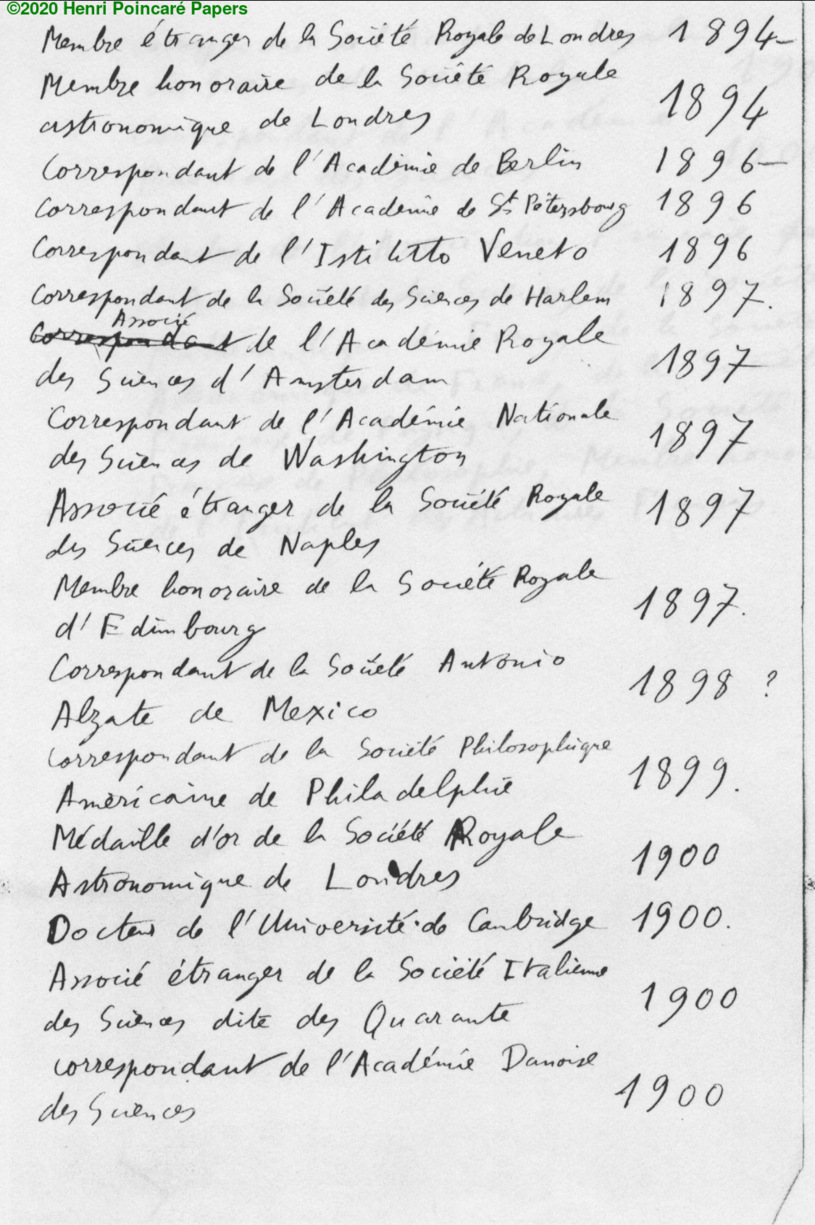 ©2020 Henri Poincaré Papers
Membre étranger de la Société Royale de Londres 1894–
Membre honoraire de la Société Royale
astronomique de Londres 1894
Correspondant de l'Académie de Berlin 1896–
Correspondant de l'Academie de St Pétersbourg 1896
Correspondant de l'Istituto Veneto 1896
Correspondant de la Société des Sciences de Harlem 1897.
Associé
Correspondant de l'Académie Royale
des Sciences d'Amsterdam 1897–
Correspondant de l'Académie Nationale
des Sciences de Washington 1897
Associé étranger de la Société Royale
des Sciences de Naples 1897
Membre honoraire de la Société Royale
d'Edimbourg 1897.
Correspondant de la Société Antonio
Alzate de Mexico 1898 ?
Correspondant de la Société Philosophique
Américaine de Philadelphie 1899.
Médaille d'or de la Société Royale
Astronomique de Londres 1900
Docteur de l'Université de Cambridge 1900.
Associé étranger de la Société Italienne
des Sciences dite des Quarante 1900
correspondant de l'Académie Danoise
des Sciences 1900